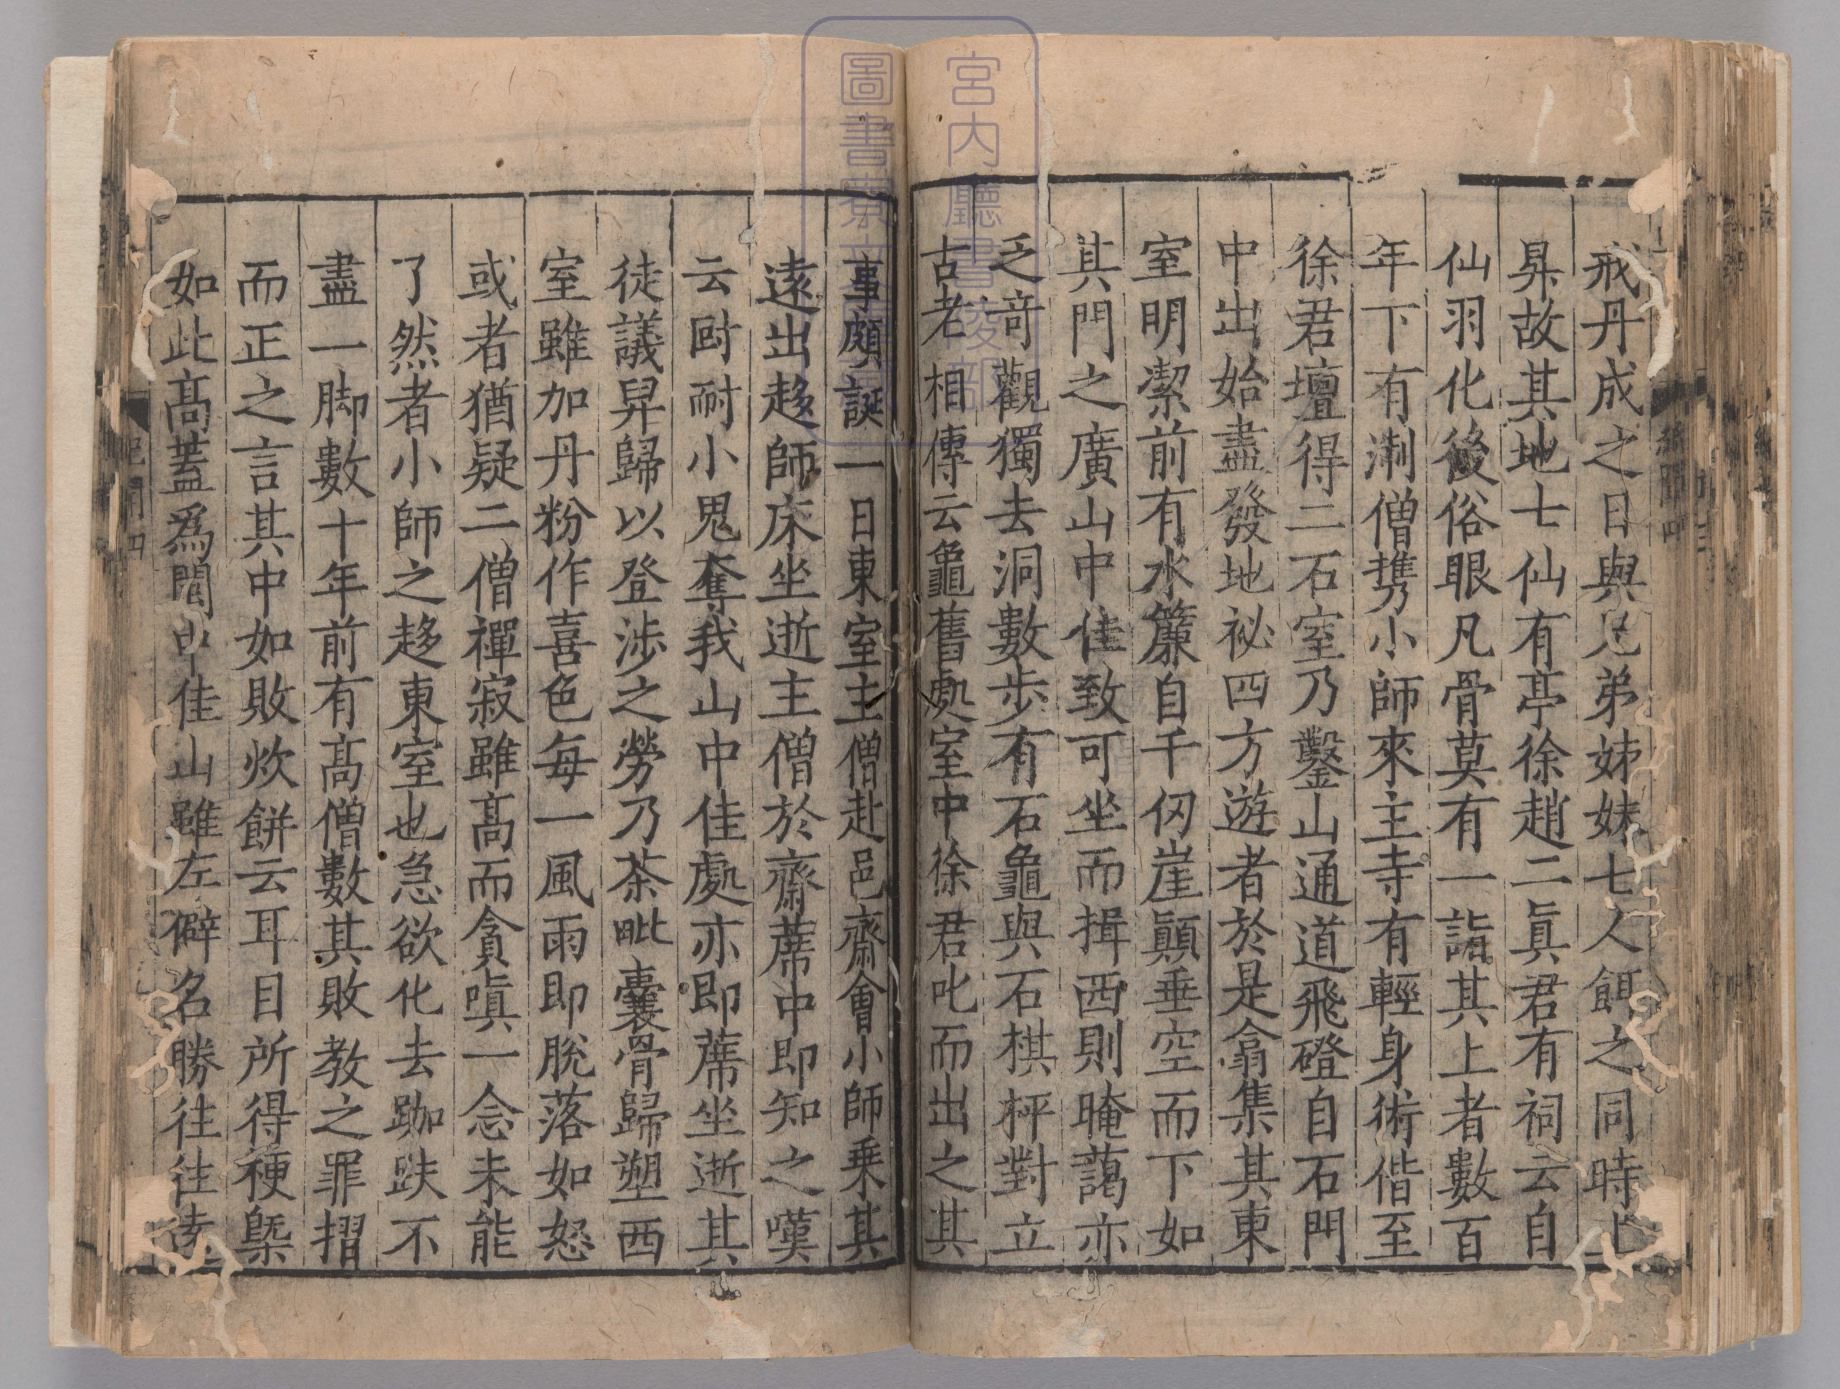 戒丹成之日與兄弟姊妹七人餌之同時上
昇故其地七仙有亭徐趙二眞君有祠云自
仙羽化後俗眼凡骨莫有一詣其上者數百
年下有淛僧携小師來主寺有輕身術偕至
徐君壇得二石室乃鑿山通道飛磴自石門
中出始盡發地祕四方遊者於是翕集其東
室明潔前有水簾自千仞崖顛垂空而下如
其門之廣山中佳致可坐而揖西則晻藹亦
乏奇觀獨去洞數步有石龜與石棋枰對立
古老相傳云龜舊處室中徐君叱而出之其
事頗誕一日東室主僧赴邑齋會小師乗其
遠出趍師床坐逝主僧於齋蓆中即知之嘆
云尀耐小鬼奪我山中佳處亦即蓆坐逝其
徒議舁歸以登涉之勞乃茶毗囊骨歸塑西
室雖加丹粉作喜色每一風雨即脫落如怒
或者猶疑二僧禪寂雖高而貪嗔一念未能
了然者小師之趍東室也急欲化去跏趺不
盡一脚數十年前有高僧數其敗教之罪摺
而正之言其中如敗炊餅云耳目所得梗槩
如此高蓋爲閩中佳山雖左僻名勝往往
紀聞四
宮内廳書陵部
圖書寮文庫